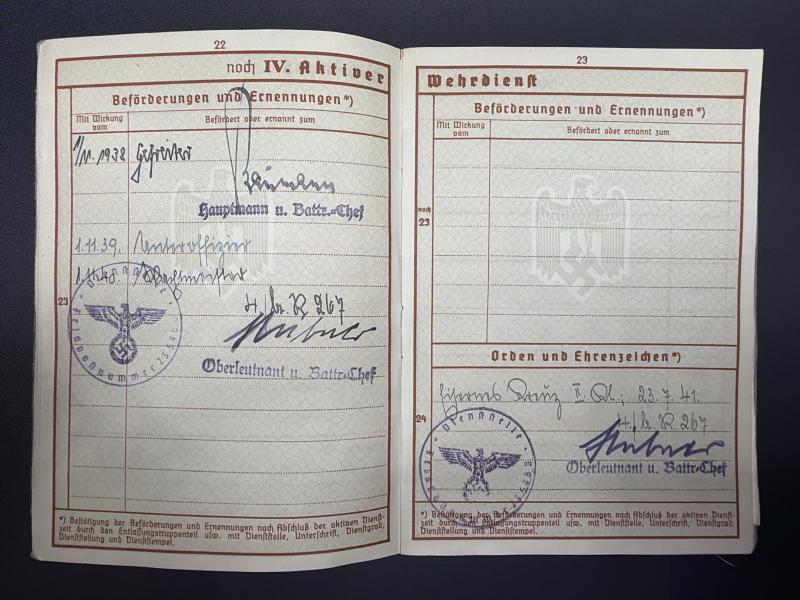 22
noch IV. Aktiver
Beförderungen und Ernennungen*)
Mit Wirkung vom
Befördert oder ernannt zum
1/11. 1938 Gefreiter
Hauptmann u. Battr.-Chef
1.11.39. Unteroffizier
1.11.40. Wachtmeister
4./ 267
23
Dienststelle
Feldpostnummer
Oberleutnant u. Battr.-Chef
*) Bestätigung der Beförderungen und Ernennungen nach Abschluß der aktiven Dienst-
zeit durch den Entlassungstruppenteil usw. mit Dienststelle, Unterschrift, Dienstgrad,
Dienststellung und Dienststempel.
23
Wehrdienst
Beförderungen und Ernennungen*)
Mit Wirkung vom
Befördert oder ernannt zum
noch
23
Orden und Ehrenzeichen*)
Eisernes Kreuz II. Kl.; 23.7.41.
4./ 267
24
Dienststelle
Oberleutnant u. Battr.-Chef
*) Bestätigung der Beförderungen und Ernennungen nach Abschluß der aktiven Dienst-
zeit durch den Entlassungstruppenteil usw. mit Dienststelle, Unterschrift, Dienstgrad,
Dienststellung und Dienststempel.